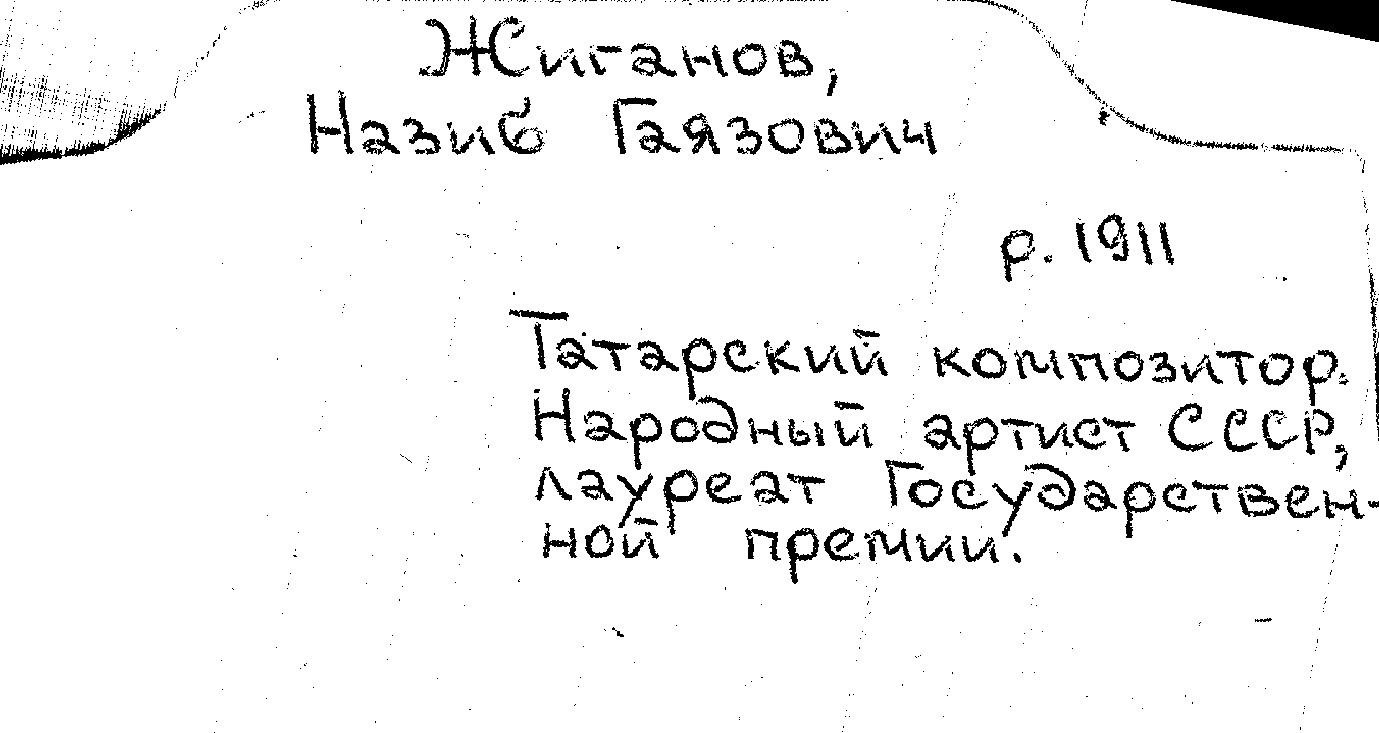 Жиганов,
Назиб Гаязович
р. 1911
Татарский композитор.
Народный артист СССР,
лауреат Государствен-
ной премии.